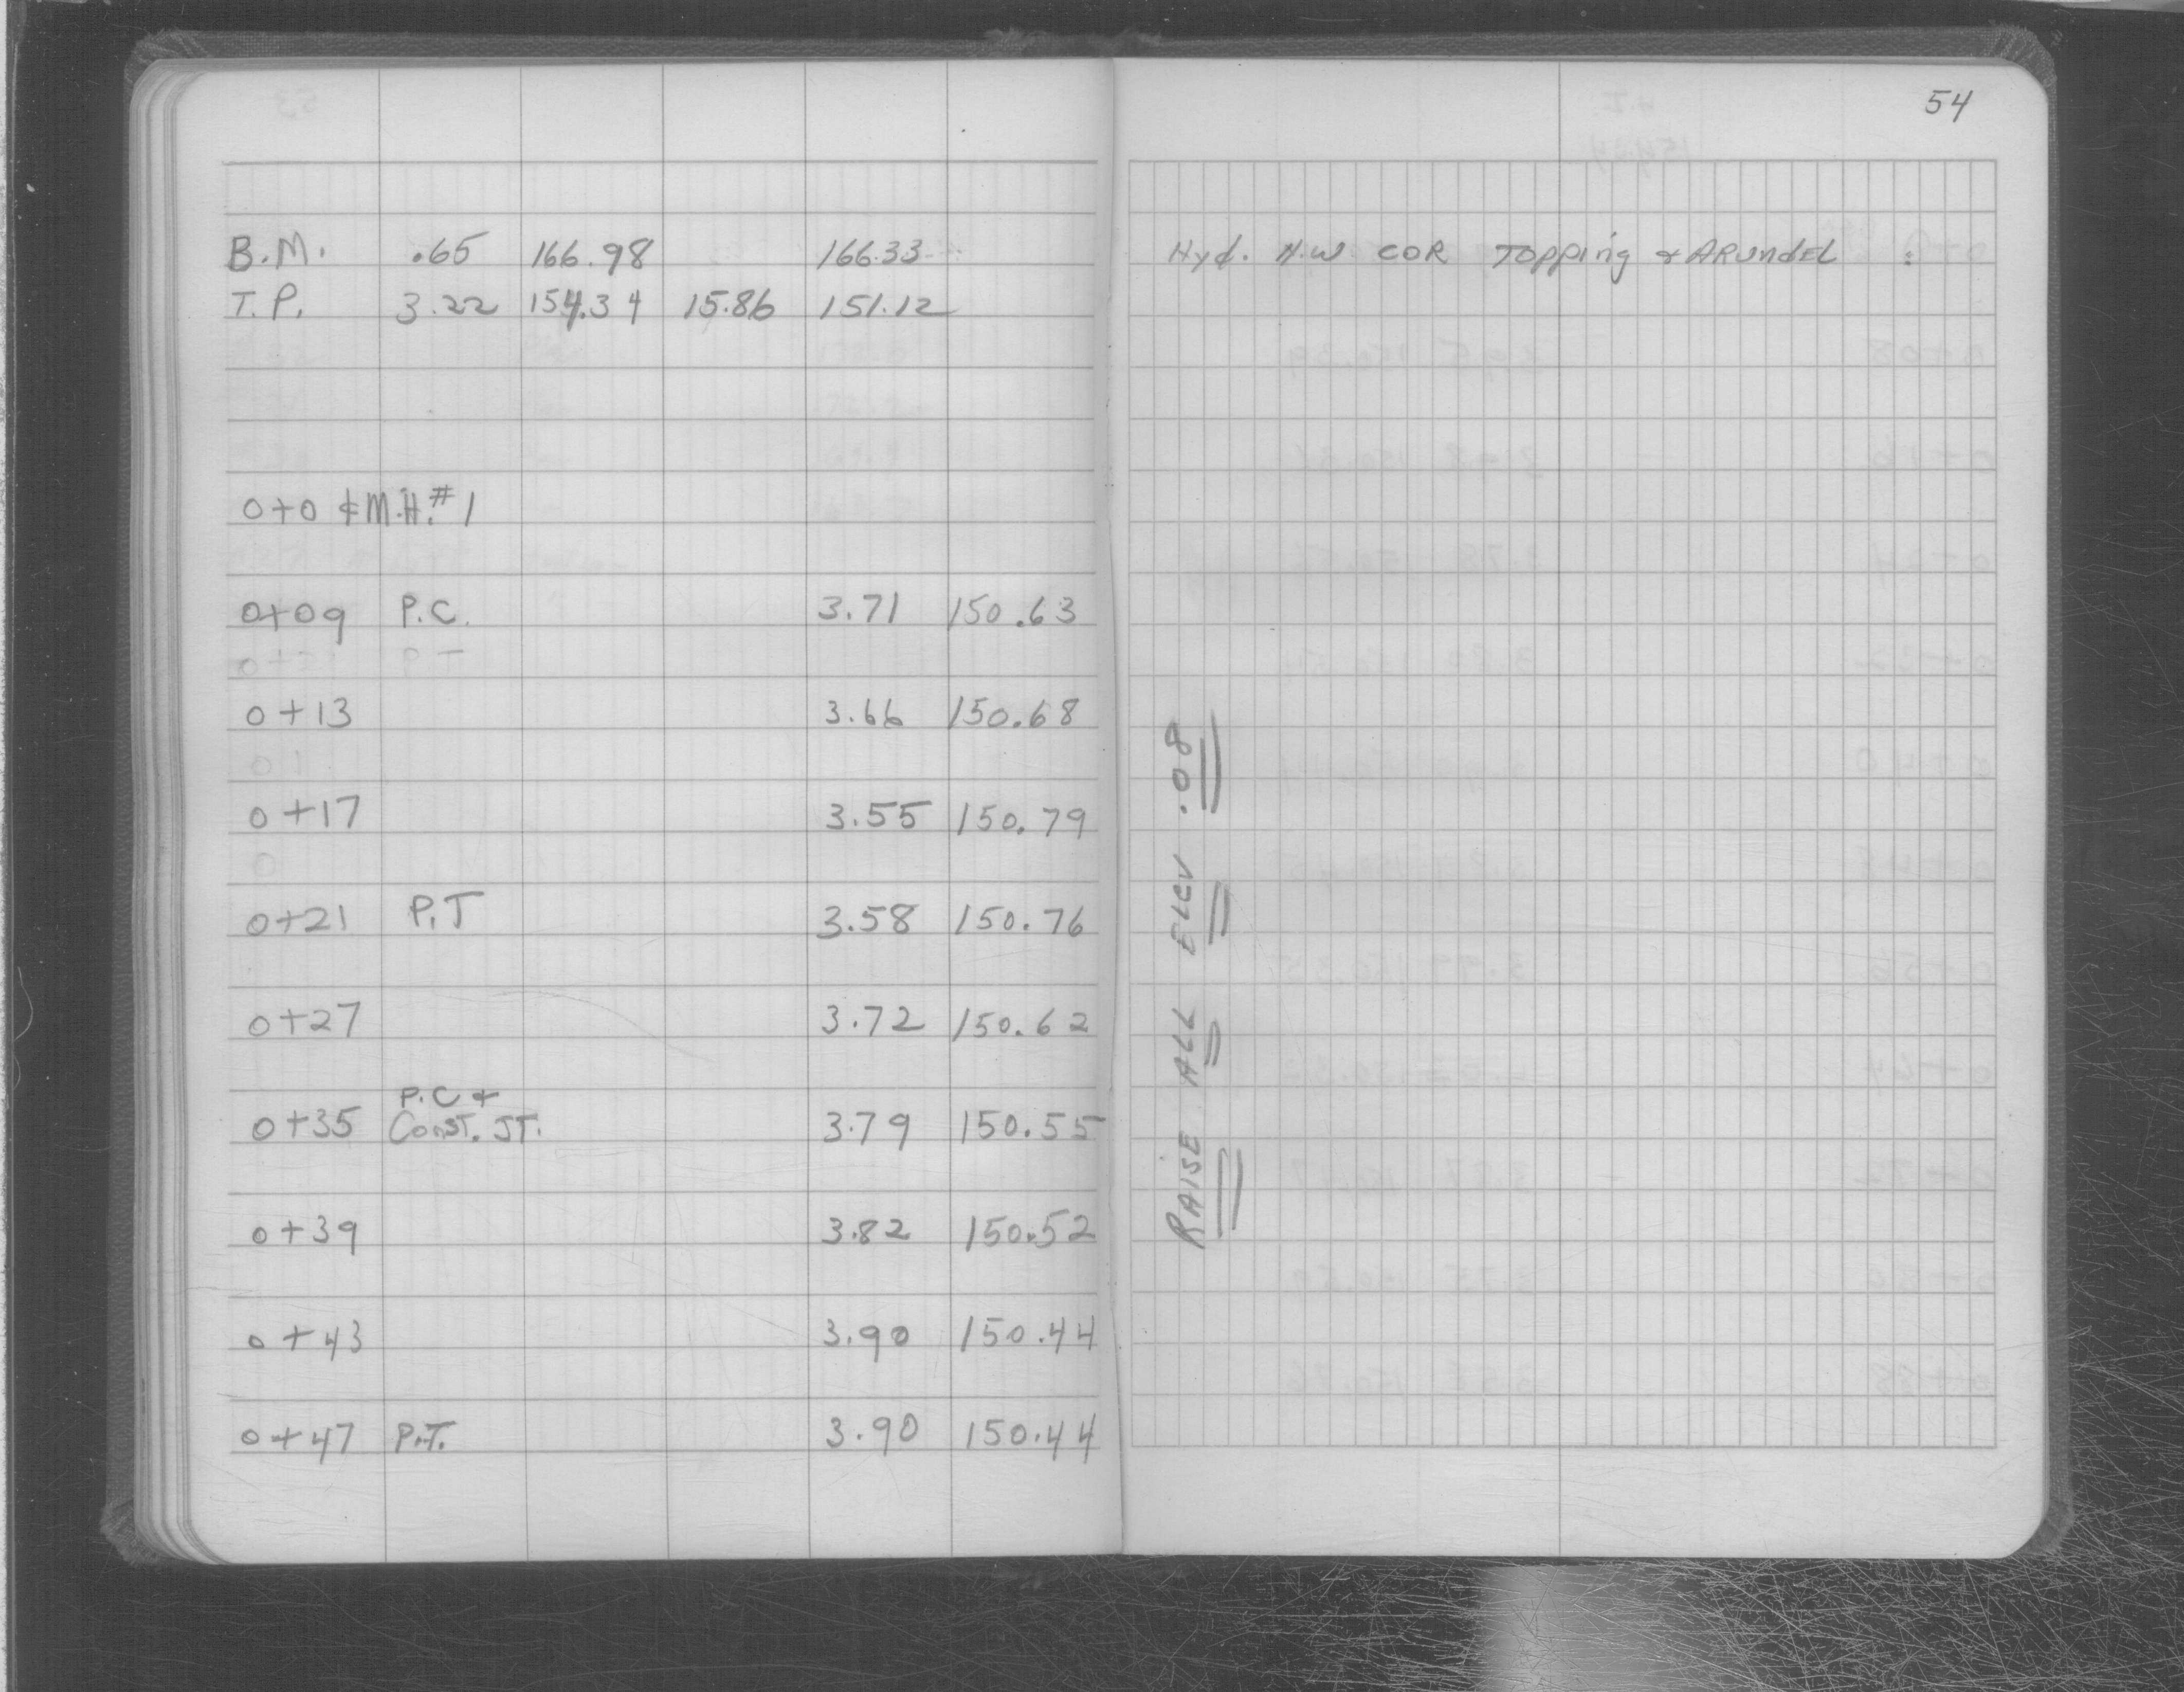 54
B.M. .65 166.98 166.33 Hyd. N.W. COR Topping & ARUNdEL :
T.P. 3.22 154.34 15.86 151.12
0+0 ¢ M.H. #1
0+09 P.C. 3.71 150.63
0+13 3.66 150.68
0+17 3.55 150.79
0+21 P.T 3.58 150.76
0+27 3.72 150.62
P.C +
0+35 Const. JT. 3.79 150.55
0+39 3.82 150.52
0+43 3.90 150.44
0+47 P.T. 3.90 150.44
RAISE ALL ELEV .08